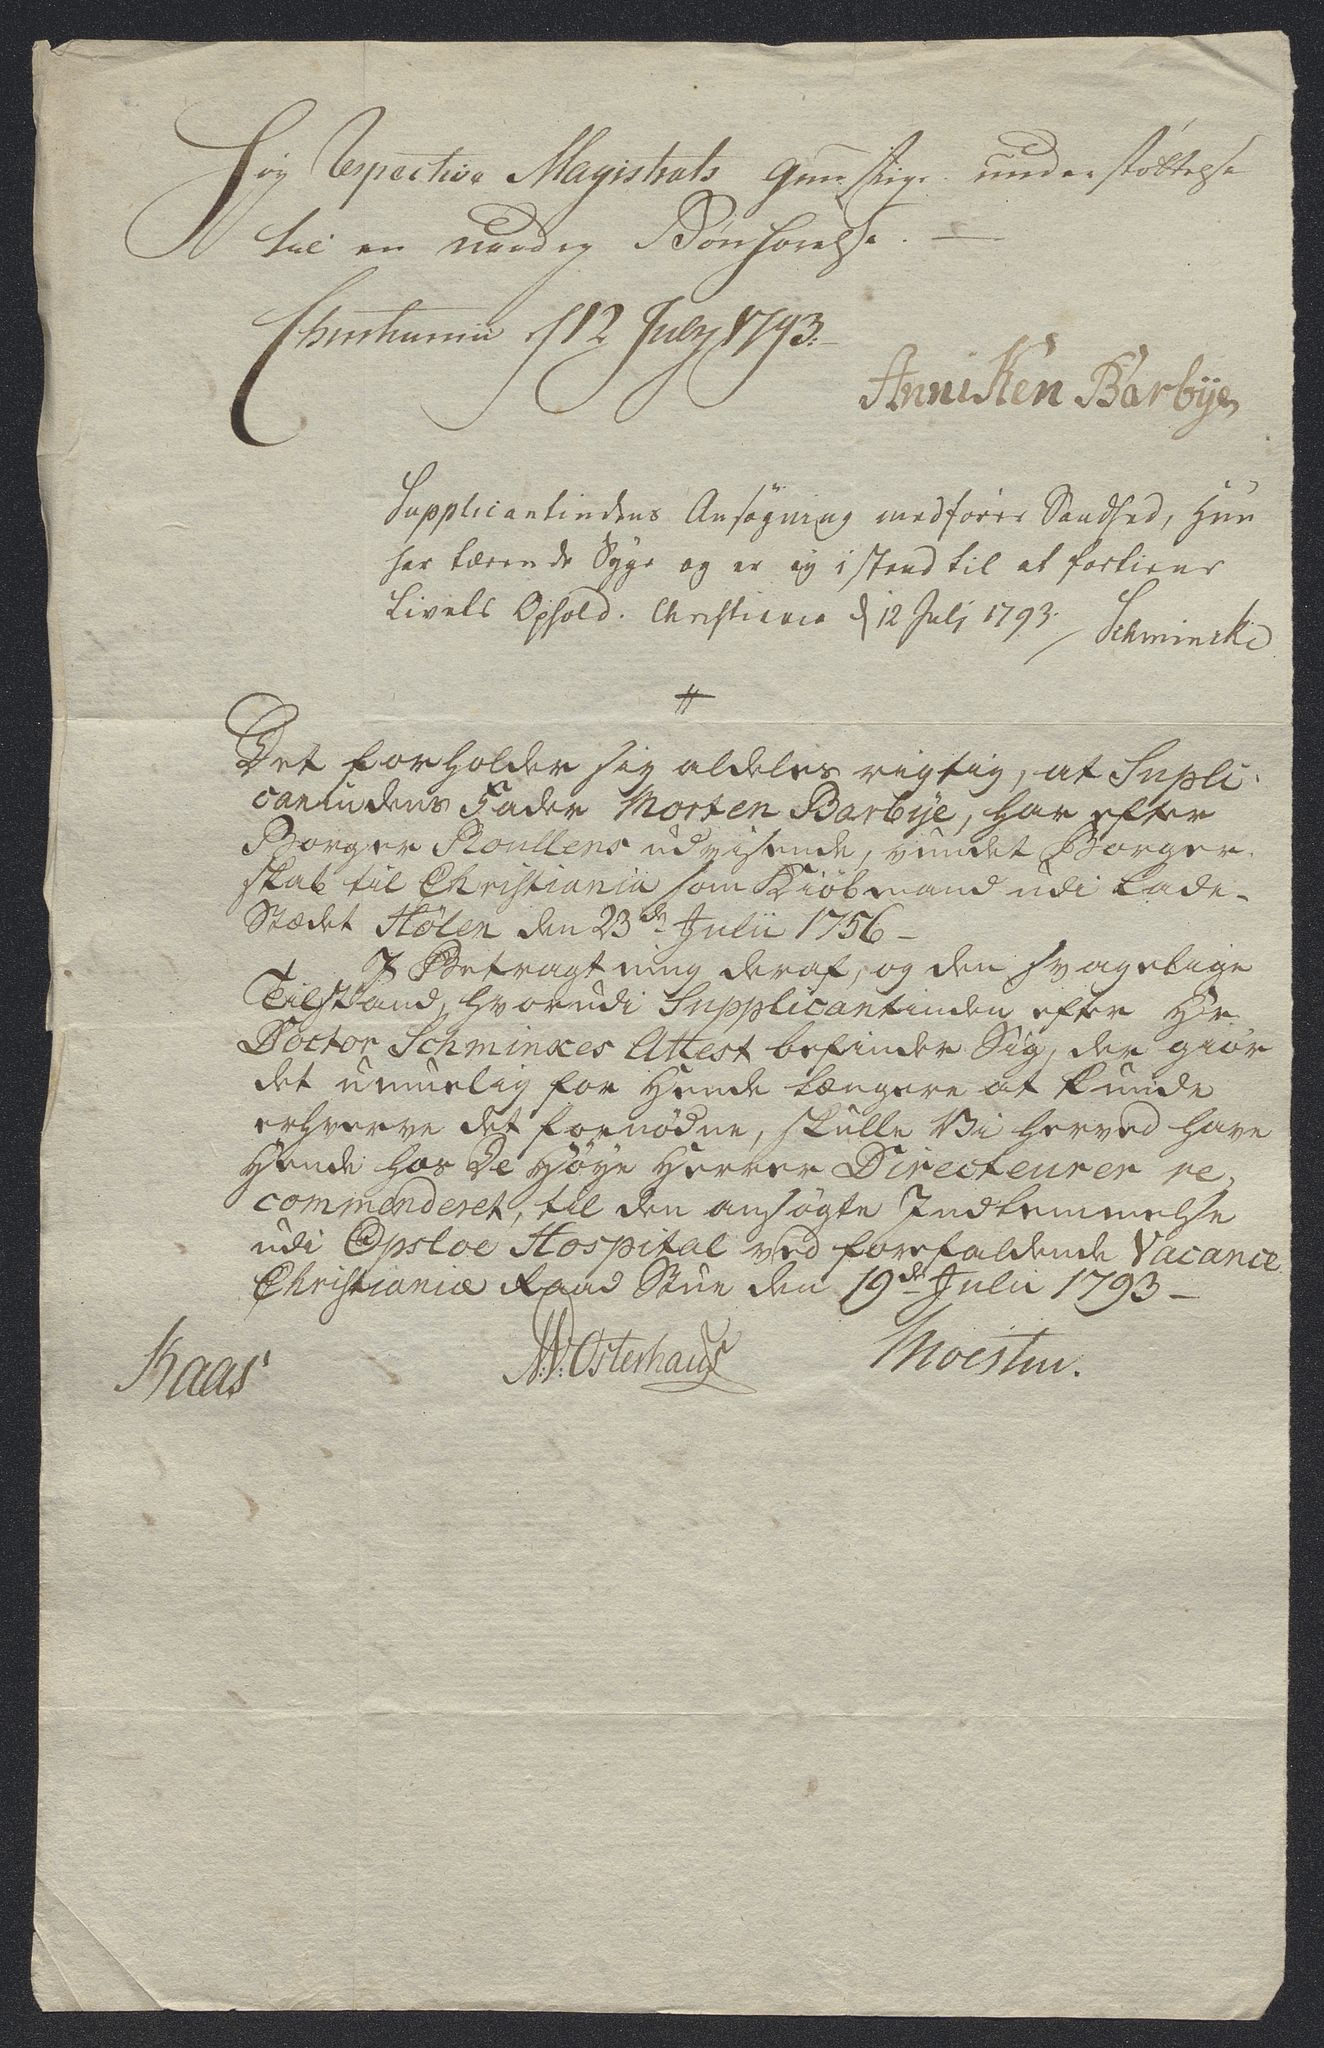 Høy respective Magistrats gunstige understøttelse
til en naadig Bønhørelse. —
Christiania d 12 July 1793.
Anniken Barbye
Supplicantindens Ansøgning medfører Sandhed, Hun
har tærende Syge og er ey i stand til at fortiene
Livets Ophold. Christiania d 12 Julj 1793. Schmincke
Det forholder sig aldeles rigtig, at Supli-
cantindens Fader Morten Barbye, har efter
Borger Roullens udvisende, vundet Borger-
skab til Christiania som Kiøbmand udi Lade-
Stædet Hølen den 23de Julii 1756 –
I Betragtning deraf, og den svagelige
Tilstand, hvorudi Supplicantinden efter Hr
Doctor Schminkes Attest befinder Sig, der giør
det umuelig for Hende længere at kunde
erhverve det fornødne, skulle Vi herved have
Hende hos De Høye Herrer Directeurer re-
commenderet, til den ansøgte Indlemmelse
udi Opsloe Hospital ved forefaldende Vacance
Christiania Raad Stue den 19de Julii 1793 –
Kaas N: W: Osterhaus Moestue.